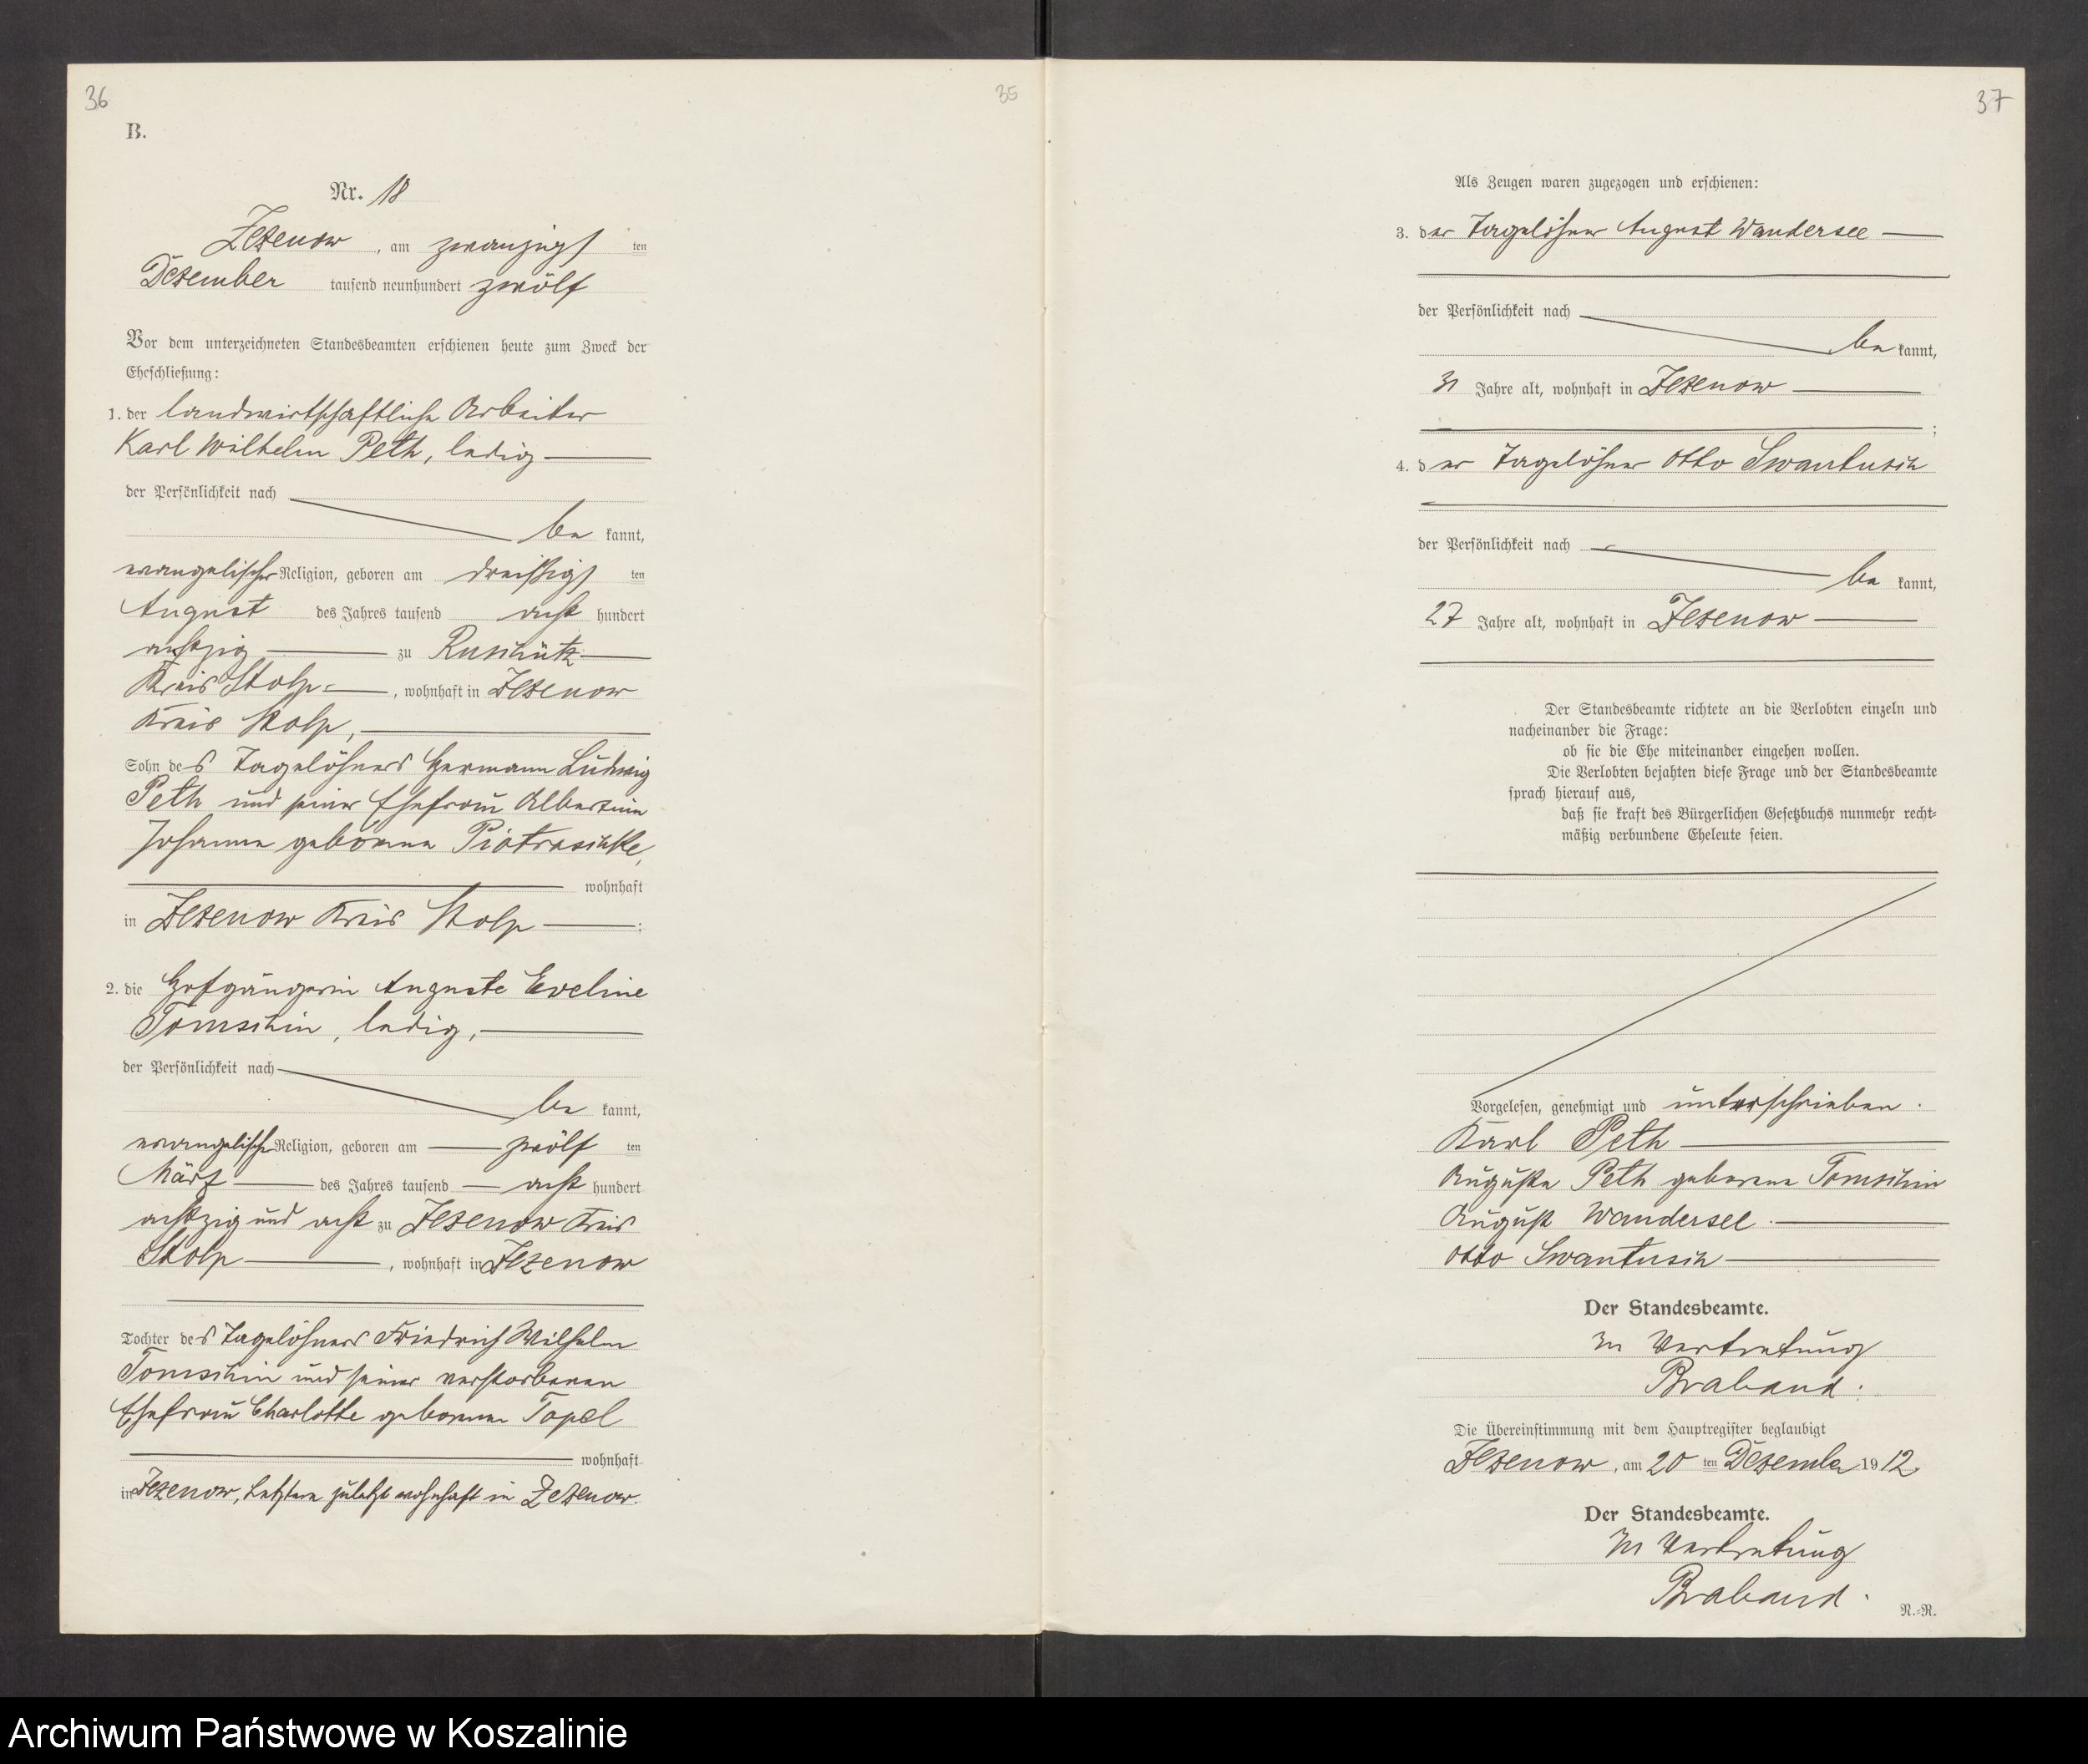 36
35
B.
Nr. 18
Zezenow, am zwanzigsten
Dezember tausend neunhundert zwölf
Vor dem unterzeichneten Standesbeamten erschienen heute zum Zweck der
Eheschließung:
1. der landwirtschaftliche Arbeiter
Karl Wilhelm Peth, ledig
der Persönlichkeit nach
be kannt,
evangelischer Religion, geboren am dreißigsten
August des Jahres tausend acht hundert
achtzig zu Ruschütz
Kreis Stolp, wohnhaft in Zezenow
Kreis Stolp,
Sohn des Tagelöhners Hermann Ludwig
Peth und seiner Ehefrau Albertine
Johanne geborene Piotraschke,
wohnhaft
in Zezenow Kreis Stolp;
2. die Hofgängerin Auguste Eveline
Tomschin, ledig,
der Persönlichkeit nach
be kannt,
evangelischer Religion, geboren am zwölf ten
März des Jahres tausend acht hundert
achtzig und acht zu Zezenow Kreis
Stolp, wohnhaft in Zezenow
Tochter des Tagelöhners Friedrich Wilhelm
Tomschin und seiner verstorbenen
Ehefrau Charlotte geborene Topel
wohnhaft
in Zezenow, Letztere zuletzt wohnhaft in Zezenow.
37
Als Zeugen waren zugezogen und erschienen:
3. der Tagelöhner August Wandersee
der Persönlichkeit nach
be kannt,
31 Jahre alt, wohnhaft in Zezenow
;
4. der Tagelöhner Otto Swantusch
der Persönlichkeit nach
be kannt,
27 Jahre alt, wohnhaft in Zezenow
Der Standesbeamte richtete an die Verlobten einzeln und
nacheinander die Frage:
ob sie die Ehe miteinander eingehen wollen.
Die Verlobten bejahten diese Frage und der Standesbeamte
sprach hierauf aus,
daß sie kraft des Bürgerlichen Gesetzbuchs nunmehr recht-
mäßig verbundene Eheleute seien.
Vorgelesen, genehmigt und unterschrieben.
Karl Peth
Auguste Peth geborene Tomschin
August Wandersee.
Otto Swantusch
Der Standesbeamte.
In Vertretung
Braband.
Die Übereinstimmung mit dem Hauptregister beglaubigt
Zezenow, am 20 ten Dezember 1912.
Der Standesbeamte.
In Vertretung
Braband.
N.-R.
Archiwum Państwowe w Koszalinie